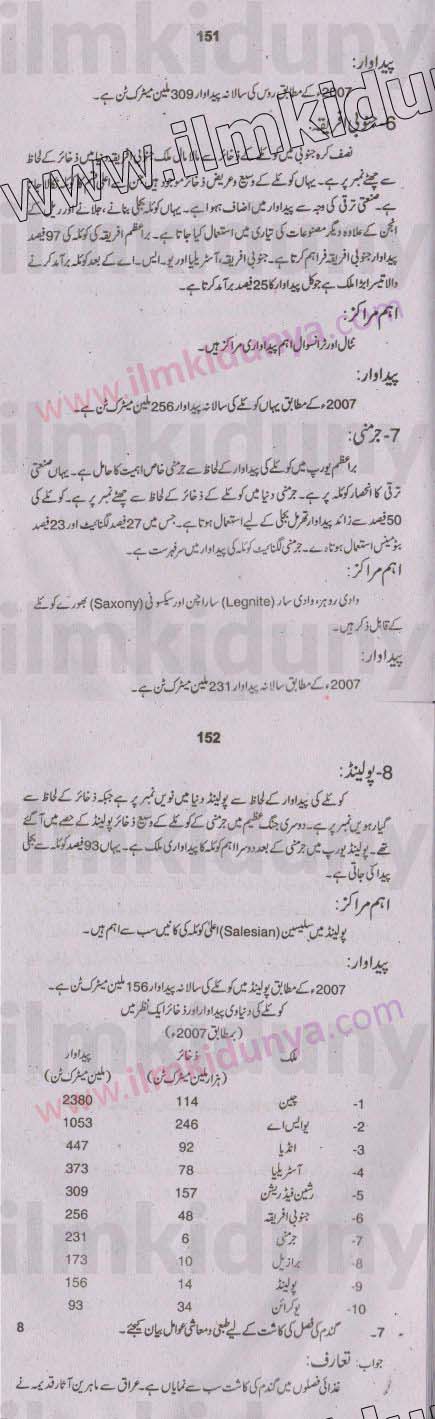 151
پیداوار:
2007ء کے مطابق روس کی سالانہ پیداوار 309 ملین میٹرک ٹن ہے۔
6- جنوبی افریقہ:
نصف کرہ جنوبی میں کوئلے کے ذخائر سے مالا مال ملک جنوبی افریقہ دنیا میں ذخائر کے لحاظ
سے چھٹے نمبر پر ہے۔ یہاں کوئلے کے وسیع و عریض ذخائر موجود ہیں اعلیٰ کوئلہ نکالا جاتا
ہے۔ صنعتی ترقی کی وجہ سے پیداوار میں اضافہ ہوا ہے۔ یہاں کوئلہ بجلی بنانے، جلانے اور ریل کے
انجن کے علاوہ دیگر مصنوعات کی تیاری میں استعمال کیا جاتا ہے۔ براعظم افریقہ کی کوئلہ کی 97 فیصد
پیداوار جنوبی افریقہ فراہم کرتا ہے۔ جنوبی افریقہ، آسٹریلیا اور یو۔ایس۔اے کے بعد کوئلہ برآمد کرنے
والا تیسرا بڑا ملک ہے جو کل پیداوار کا 25 فیصد برآمد کرتا ہے۔
اہم مراکز:
نٹال اور ٹرانسوال اہم پیداواری مراکز ہیں۔
پیداوار:
2007ء کے مطابق یہاں کوئلے کی سالانہ پیداوار 256 ملین میٹرک ٹن ہے۔
7- جرمنی:
براعظم یورپ میں کوئلے کی پیداوار کے لحاظ سے جرمنی خاص اہمیت کا حامل ہے۔ یہاں صنعتی
ترقی کا انحصار کوئلہ پر ہے۔ جرمنی دنیا میں کوئلے کے ذخائر کے لحاظ سے چھٹے نمبر پر ہے۔ کوئلے کی
50 فیصد سے زائد پیداوار تھرمل بجلی کے لیے استعمال ہوتا ہے۔ جس میں 27 فیصد لگنائیٹ اور 23 فیصد
بٹومینس استعمال ہوتا ہے۔ جرمنی لگنائیٹ کوئلہ کی پیداوار میں سرفہرست ہے۔
اہم مراکز:
وادی روہر، وادی سار (Legnite) سار اچن اور سیکسونی (Saxony) بھورے کوئلے
کے قابل ذکر ہیں۔
پیداوار:
2007ء کے مطابق سالانہ پیداوار 231 ملین میٹرک ٹن ہے۔
152
8- پولینڈ:
کوئلے کی پیداوار کے لحاظ سے پولینڈ دنیا میں نویں نمبر پر ہے جبکہ ذخائر کے لحاظ سے
گیارہویں نمبر پر ہے۔ دوسری جنگ عظیم میں جرمنی کے کوئلے کے وسیع ذخائر پولینڈ کے حصے میں آ گئے
تھے۔ پولینڈ یورپ میں جرمنی کے بعد دوسرا اہم کوئلہ کا پیداواری ملک ہے۔ یہاں 93 فیصد کوئلہ سے بجلی
پیدا کی جاتی ہے۔
اہم مراکز:
پولینڈ میں سلیسین (Salesian) اعلیٰ کوئلہ کی کانیں سب سے اہم ہیں۔
پیداوار:
2007ء کے مطابق پولینڈ میں کوئلے کی سالانہ پیداوار 156 ملین میٹرک ٹن ہے۔
کوئلے کی دنیاوی پیداوار اور ذخائر ایک نظر میں
(بمطابق 2007ء)
ملک ذخائر پیداوار
(ہزار ملین میٹرک ٹن) (ملین میٹرک ٹن)
1- چین 114 2380
2- یو ایس اے 246 1053
3- انڈیا 92 447
4- آسٹریلیا 78 373
5- رشین فیڈریشن 157 309
6- جنوبی افریقہ 48 256
7- جرمنی 6 231
8- برازیل 10 173
9- پولینڈ 14 156
10- یوکرائن 34 93
7- گندم کی فصل کی کاشت کے لیے طبعی و معاشی عوامل بیان کیجئے۔ 8
جواب: تعارف:
غذائی فصلوں میں گندم کی کاشت سب سے نمایاں ہے۔ عراق سے ماہرین آثار قدیمہ نے
www.ilmkidunya.com
www.ilmkidunya.com
www.ilmkidunya.com